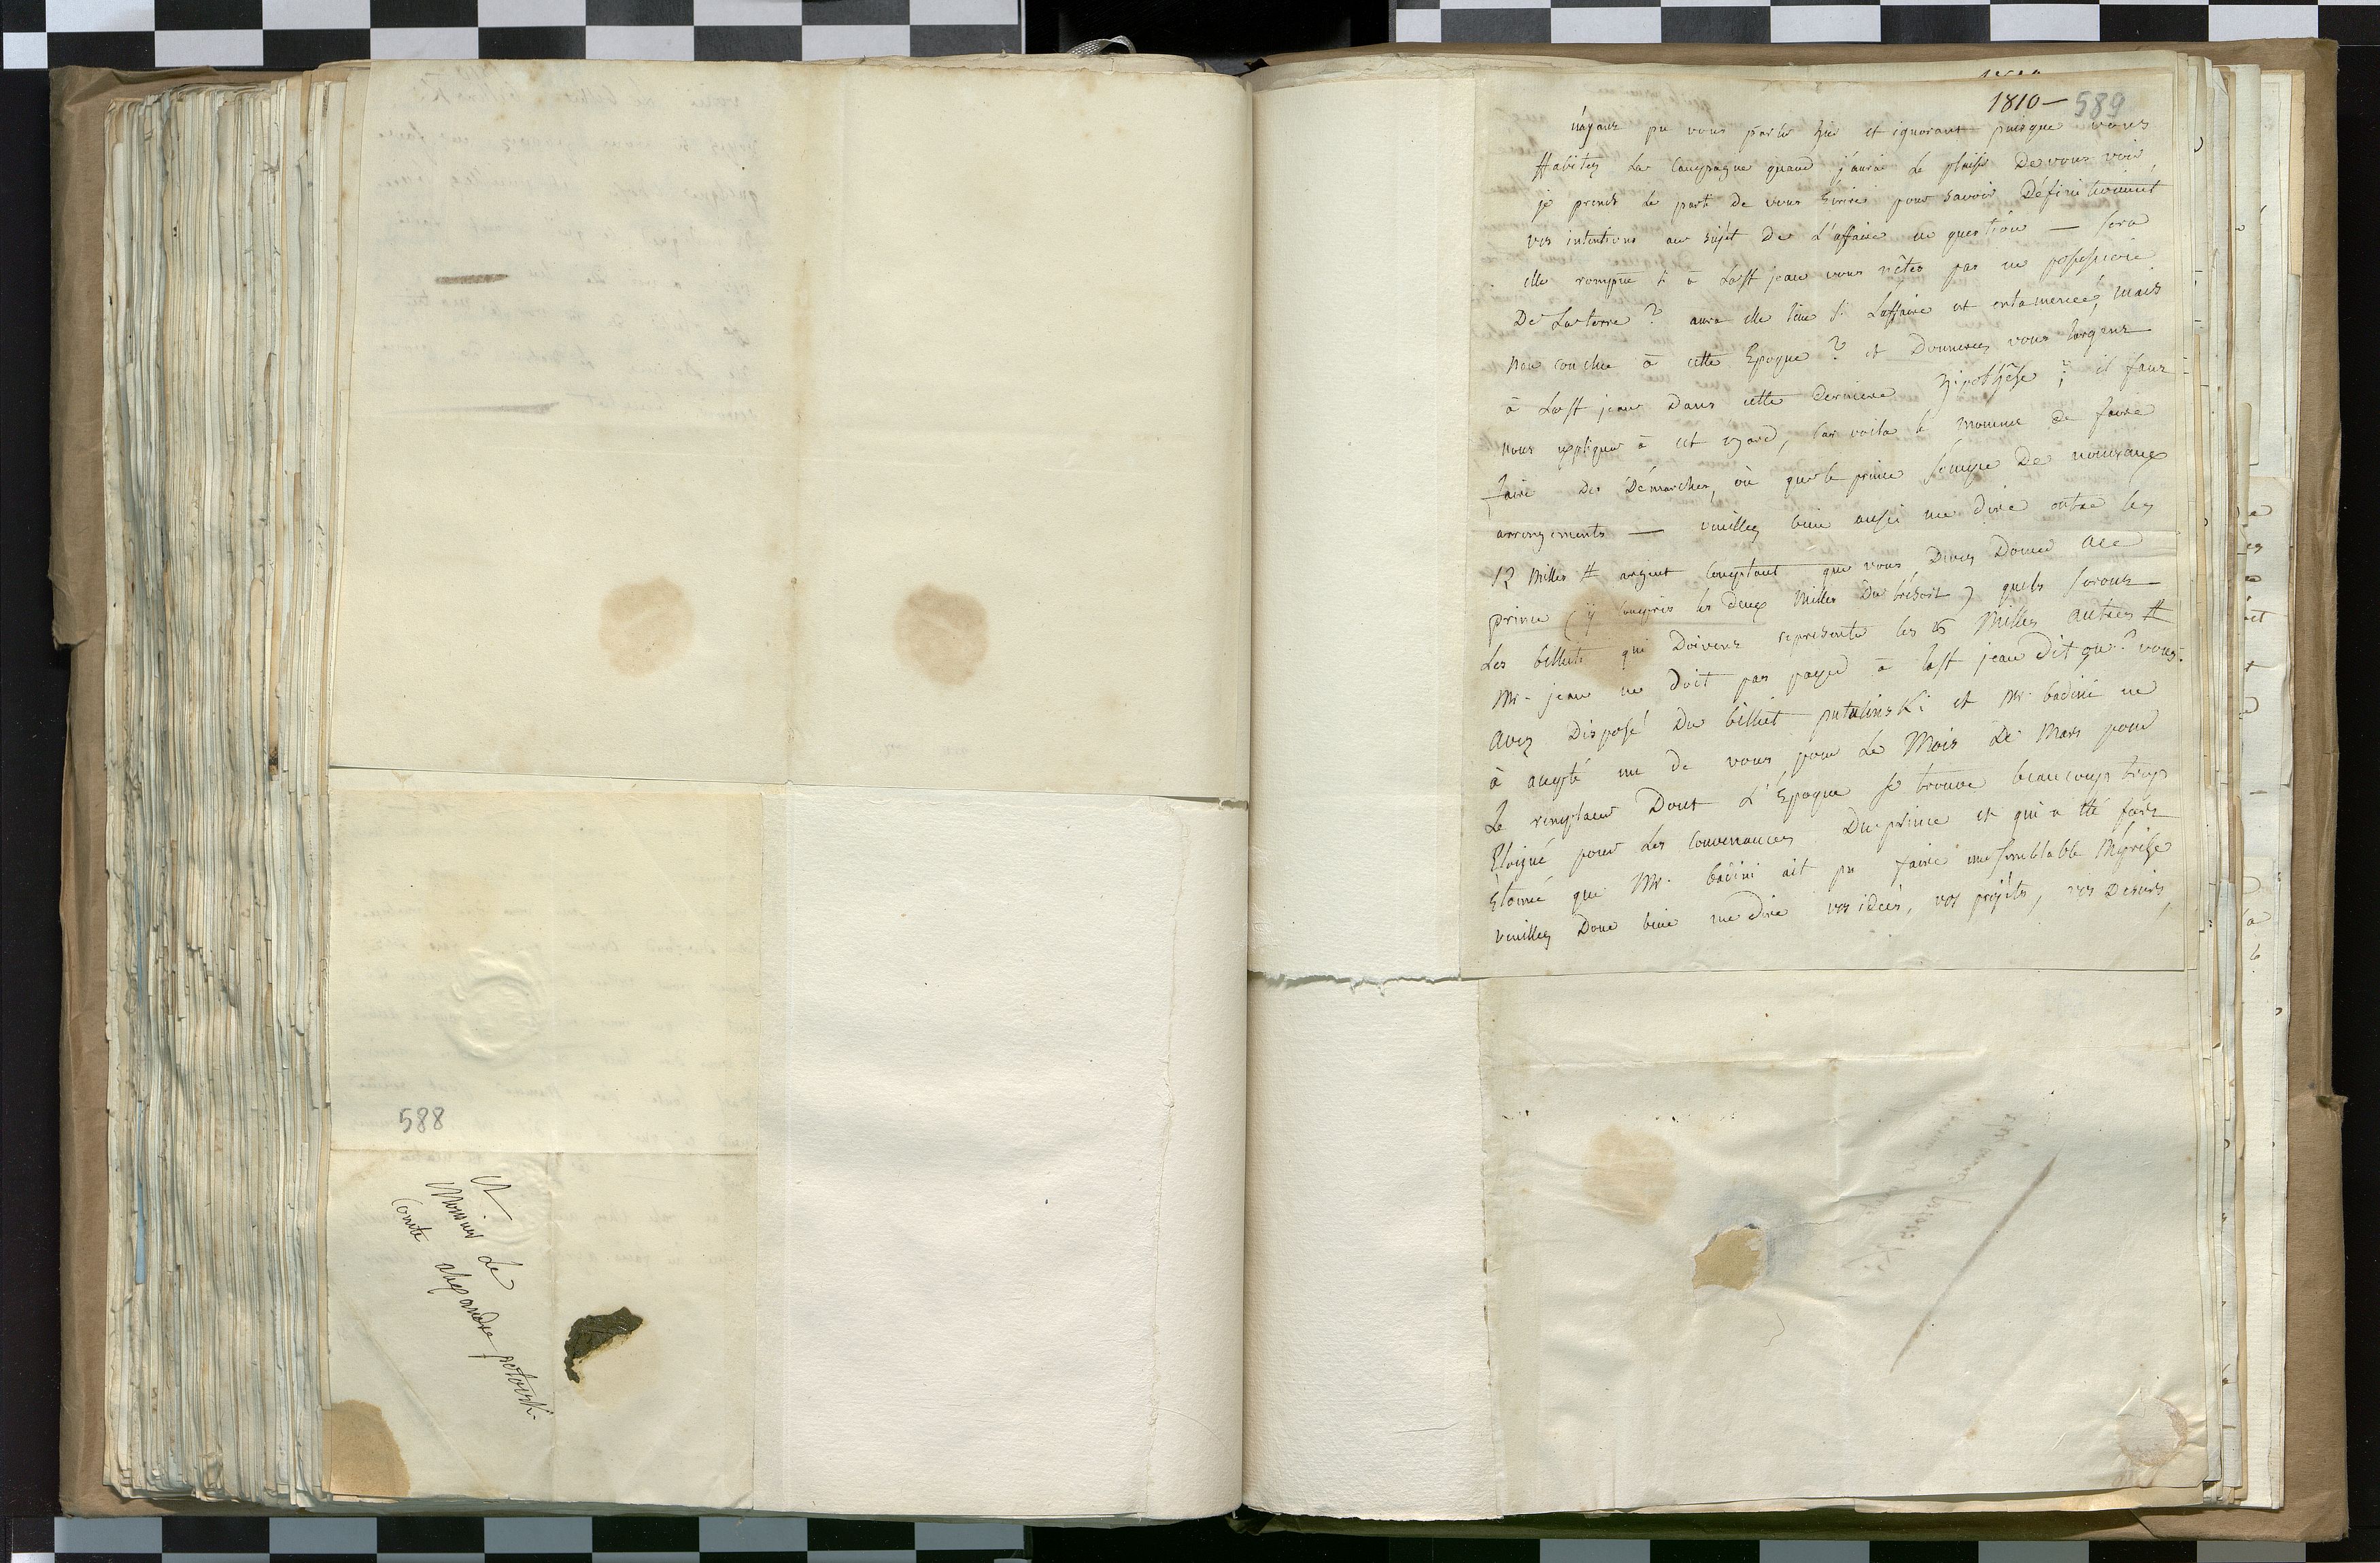 588
A
Monsieur Le
Comte alexandre potoski
1810 — 589
n'ayant pu vous parler hier et ignorant puisque vous
Habitez La Campagne quand j'aurai Le plaisir De vous voir,
je prends Le parti De vous Ecrire pour savoir Définitivement
vos intentions au sujet De L'affaire en question — sera
elle rompue si à La st jean vous n'êtes pas en possession
De La terre ? aura elle lieu si L'affaire est entamencée, mais
Non conclue à cette Epoque ? et Donnerez vous l'argent
à La st jean Dans cette Derniere hipothêse ? il faut
nous expliquer à cet egard, Car voila le moment de faire
faire des Démarches, où que le prince songe De nouveaux
arrangements — veuillez bien aussi me dire outre les
12 Milles # argent Comptant que vous Devez Donner au
prince (y Compris les Deux Milles Du trésor) quels seront
Les billets qui Doivent representer les Milles autres #
Mr. jean ne doit pas payer à la st jean Dit on vous
Avez Disposé Du billet putulinski et Mr. badeni ne
à accepté un de vous pour Le Mois De Mars pour
Le remplacer Dont L'Epoque se trouve beaucoup trop
Eloigné pour Les Convenances Du prince et qui a été fort
Etonné que Mr. badeni ait pu faire une semblable Méprise
veuillez Donc bien me dire vos idées, vos projéts, vos Desirs,